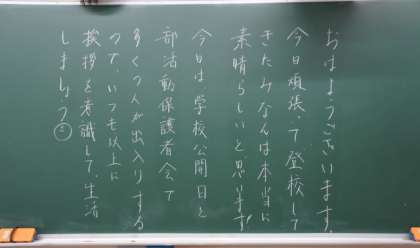 おはようございます。
今日頑張って登校して
きたみなんは本当に
素晴らしいと思います。
今日は、学校公開日と
部活動保護者会で
多くの人が出入りする
ので、いつも以上に
挨拶を意識して、生活
しましょう☺